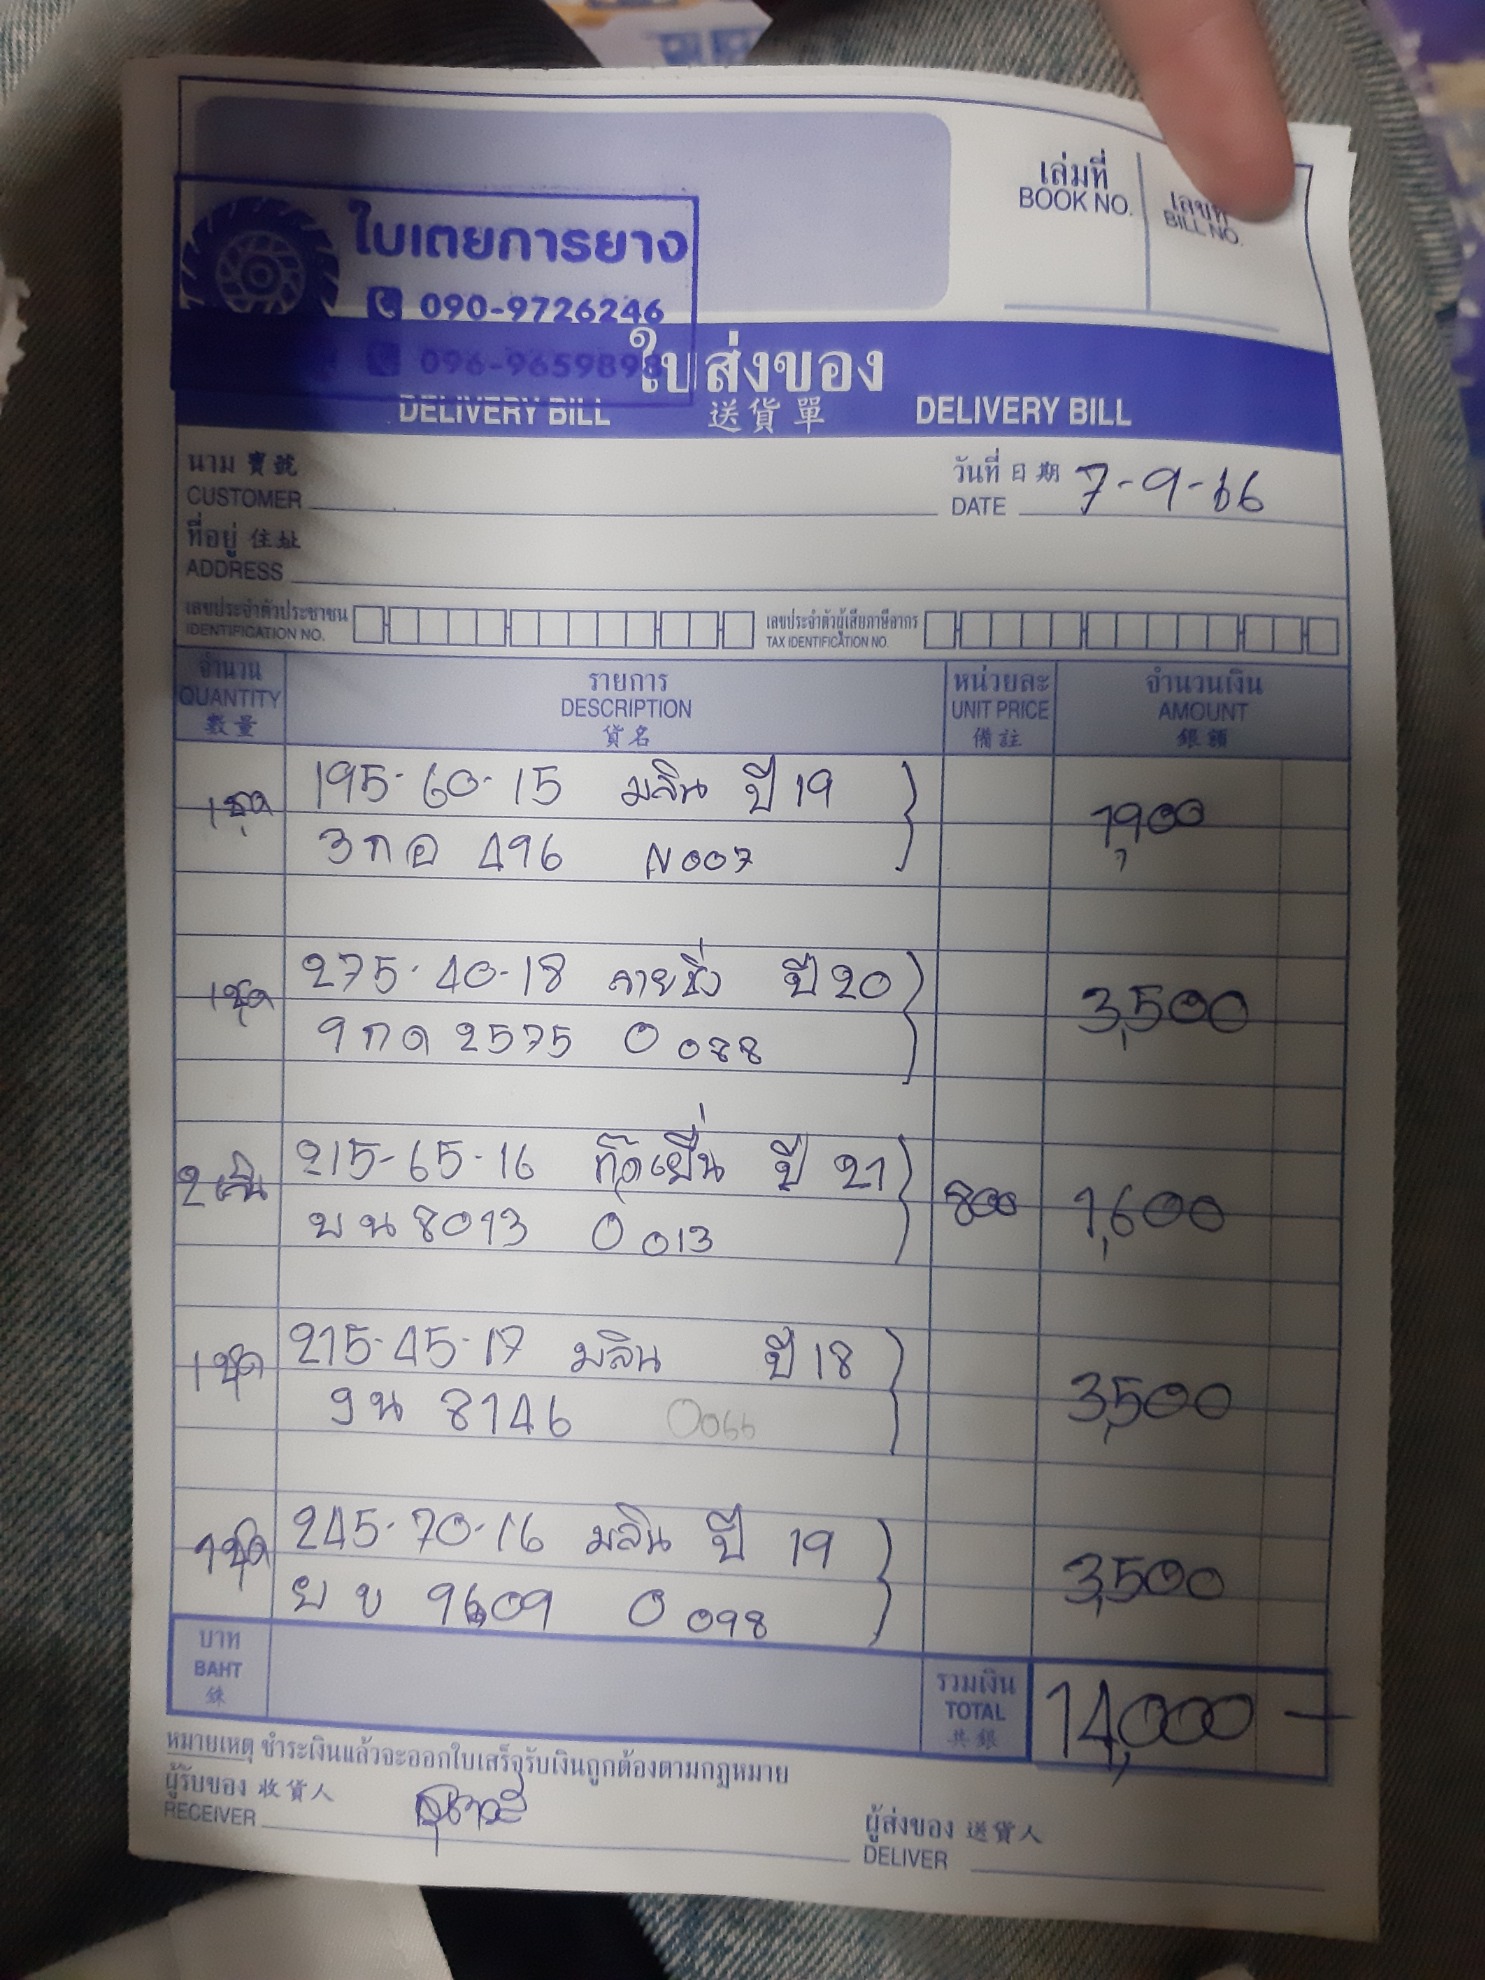 เล่มที่
BOOK NO.
BILL NO.
ใบเตยการยาง
090-9726246
ใบส่งของ
DELIVERY BILL 送貨單 DELIVERY BILL
นาม 寶號
CUSTOMER
วันที่ 日期
DATE 7-9-66
ที่อยู่ 住址
ADDRESS
เลขประจำตัวประชาชน
IDENTIFICATION NO.
เลขประจำตัวผู้เสียภาษีอากร
TAX IDENTIFICATION NO.
จำนวน รายการ หน่วยละ จำนวนเงิน
QUANTITY DESCRIPTION UNIT PRICE AMOUNT
數量 貨名 備註 銀額
1 ชุด 195-60-15 มลิน ปี 19 1,900
3กอ 496 N007
1 ชุด 275-40-18 ลายซิ่ง ปี 20 3,500
9กด 2575 O 088
2 เส้น 215-65-16 ปี 21 800 1,600
บน 8013 O 013
1 ชุด 215-45-17 มลิน ปี 18 3,500
งน 8146 O066
1 ชุด 245-70-16 มลิน ปี 19 3,500
ยข 9609 O 098
บาท
BAHT
銖
รวมเงิน
TOTAL 14,000 -
共銀
หมายเหตุ ชำระเงินแล้วจะออกใบเสร็จรับเงินถูกต้องตามกฎหมาย
ผู้รับของ 收貨人
RECEIVER
ผู้ส่งของ 送貨人
DELIVER